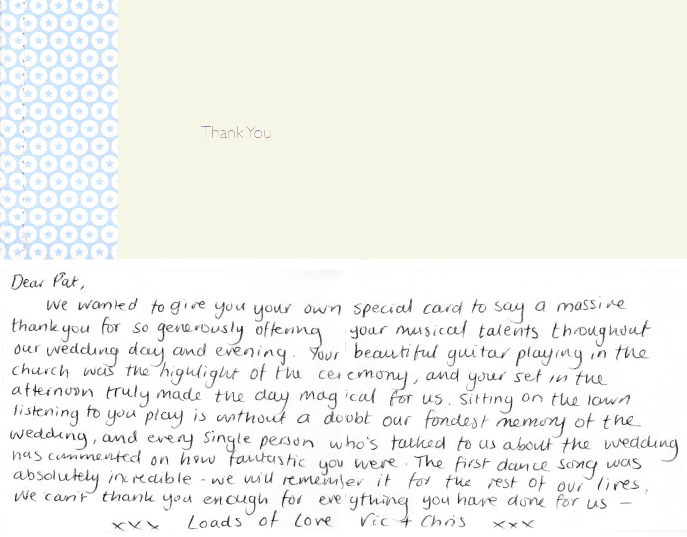 Thank You
Dear Pat,
We wanted to give you your own special card to say a massive
thankyou for so generously offering your musical talents throughout
our wedding day and evening. Your beautiful guitar playing in the
church was the highlight of the ceremony, and your set in the
afternoon truly made the day magical for us. Sitting on the lawn
listening to you play is without a doubt our fondest memory of the
wedding, and every single person who's talked to us about the wedding
has commented on how fantastic you were. The first dance song was
absolutely incredible - we will remember it for the rest of our lives.
We can't thank you enough for everything you have done for us -
xxx Loads of Love Vic + Chris xxx